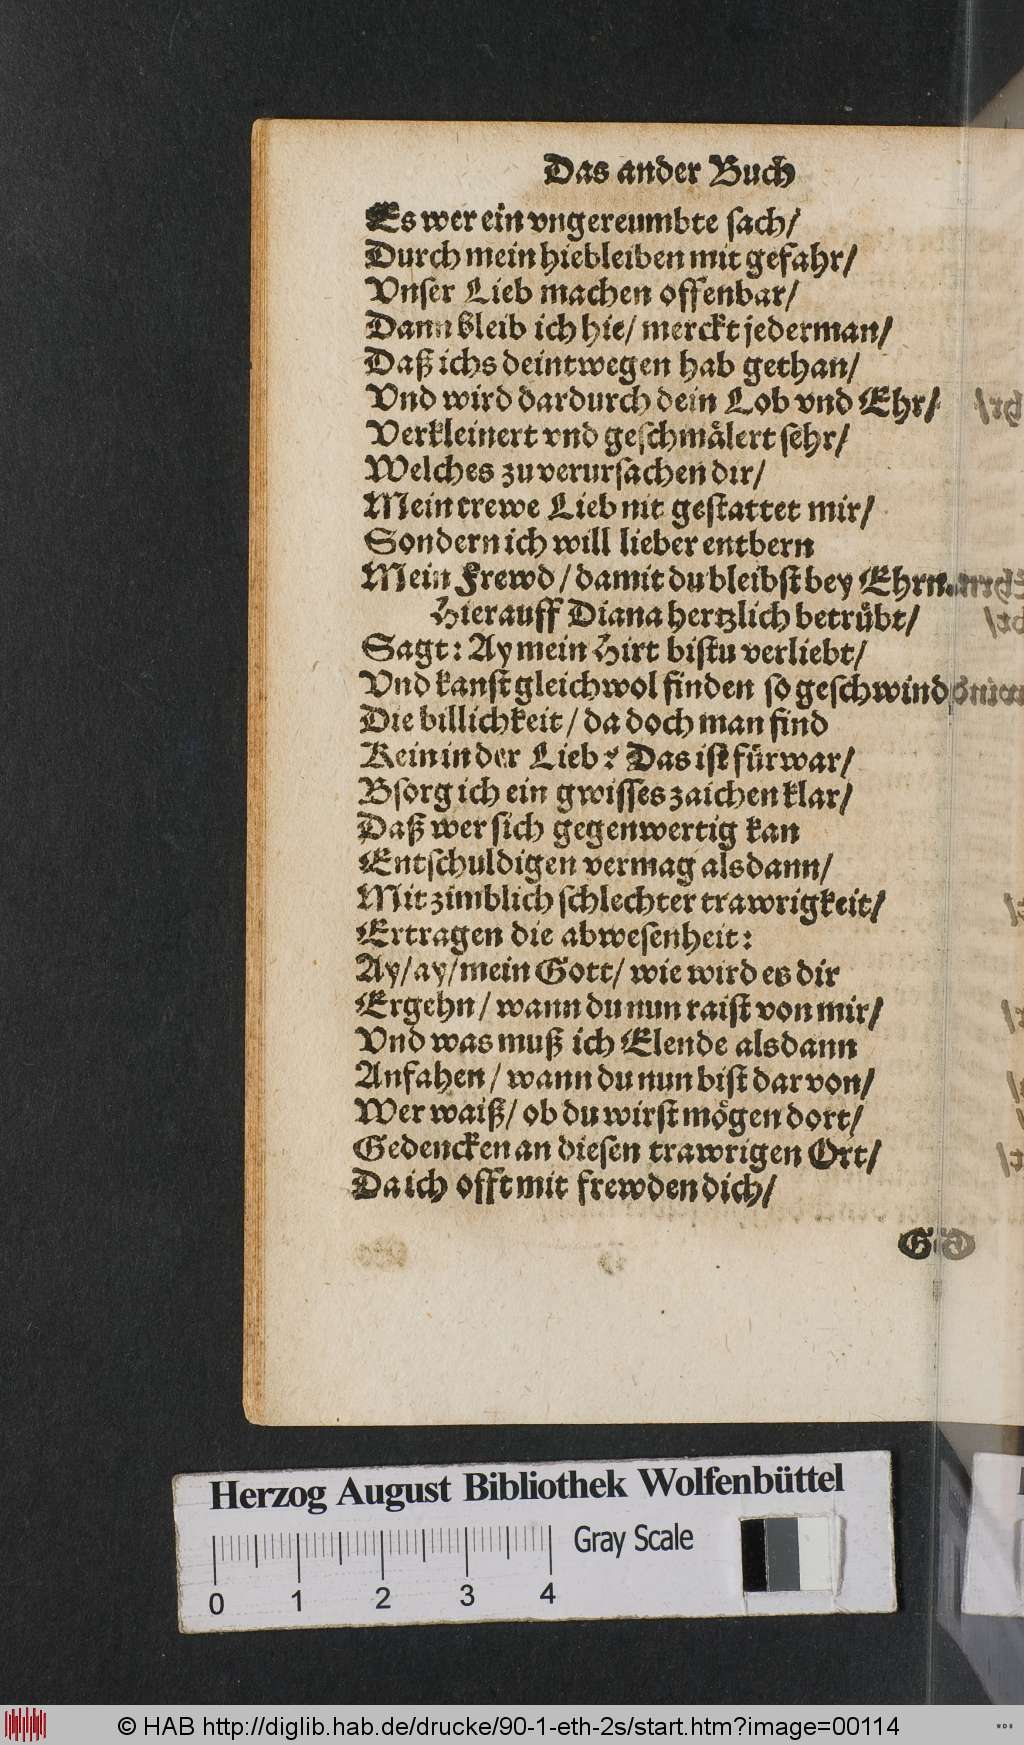 Das ander Buch
Es wer ein vngereumbte sach/
Durch mein hiebleiben mit gefahr/
Vnser Lieb machen offenbar/
Dann bleib ich hie/ merckt jederman/
Daß ichs deintwegen hab gethan/
Vnd wird dardurch dein Lob vnd Ehr/
Verkleinert vnd geschmälert sehr/
Welches zu verursachen dir/
Mein trewe Lieb nit gestattet mir/
Sondern ich will lieber entbern
Mein Frewd/ damit du bleibst bey Ehrn.
Hierauff Diana hertzlich betrübt/
Sagt: Ay mein Hirt bistu verliebt/
Vnd kanst gleichwol finden so geschwind
Die billichkeit/ da doch man find
Kein in der Lieb? Das ist fürwar/
Bsorg ich ein gwisses zaichen klar/
Daß wer sich gegenwertig kan
Entschuldigen vermag alsdann/
Mit zimblich schlechter trawrigkeit/
Ertragen die abwesenheit:
Ay/ ay/ mein Gott/ wie wird es dir
Ergehn/ wann du nun raist von mir/
Vnd was muß ich Elende alsdann
Anfahen/ wann du nun bist darvon/
Wer waiß/ ob du wirst mögen dort/
Gedencken an diesen trawrigen Ort/
Da ich offt mit frewden dich/
Herzog August Bibliothek Wolfenbüttel
Gray Scale
0 1 2 3 4
© HAB http://diglib.hab.de/drucke/90-1-eth-2s/start.htm?image=00114